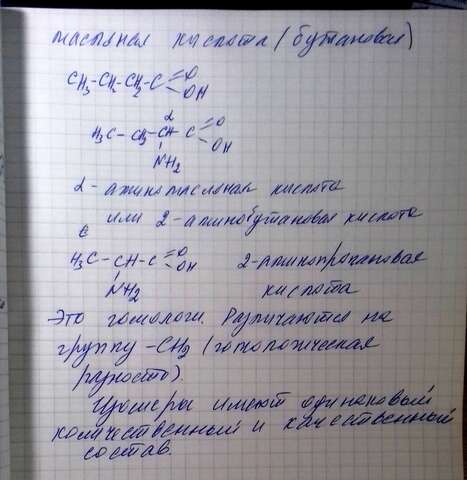 масляная кислота (бутановая)
CH3-CH2-CH2-C =O
-OH
α
H3C-CH2-CH-C =O
-OH
NH2
α-аминомасляная кислота
или 2-аминобутановая кислота
H3C-CH-C =O
-OH
2-аминопропановая
NH2
кислота
-Это гомологи. Различаются на
группу -CH2 (гомологическая
разность).
Изомеры имеют одинаковый
количественный и качественный
состав.